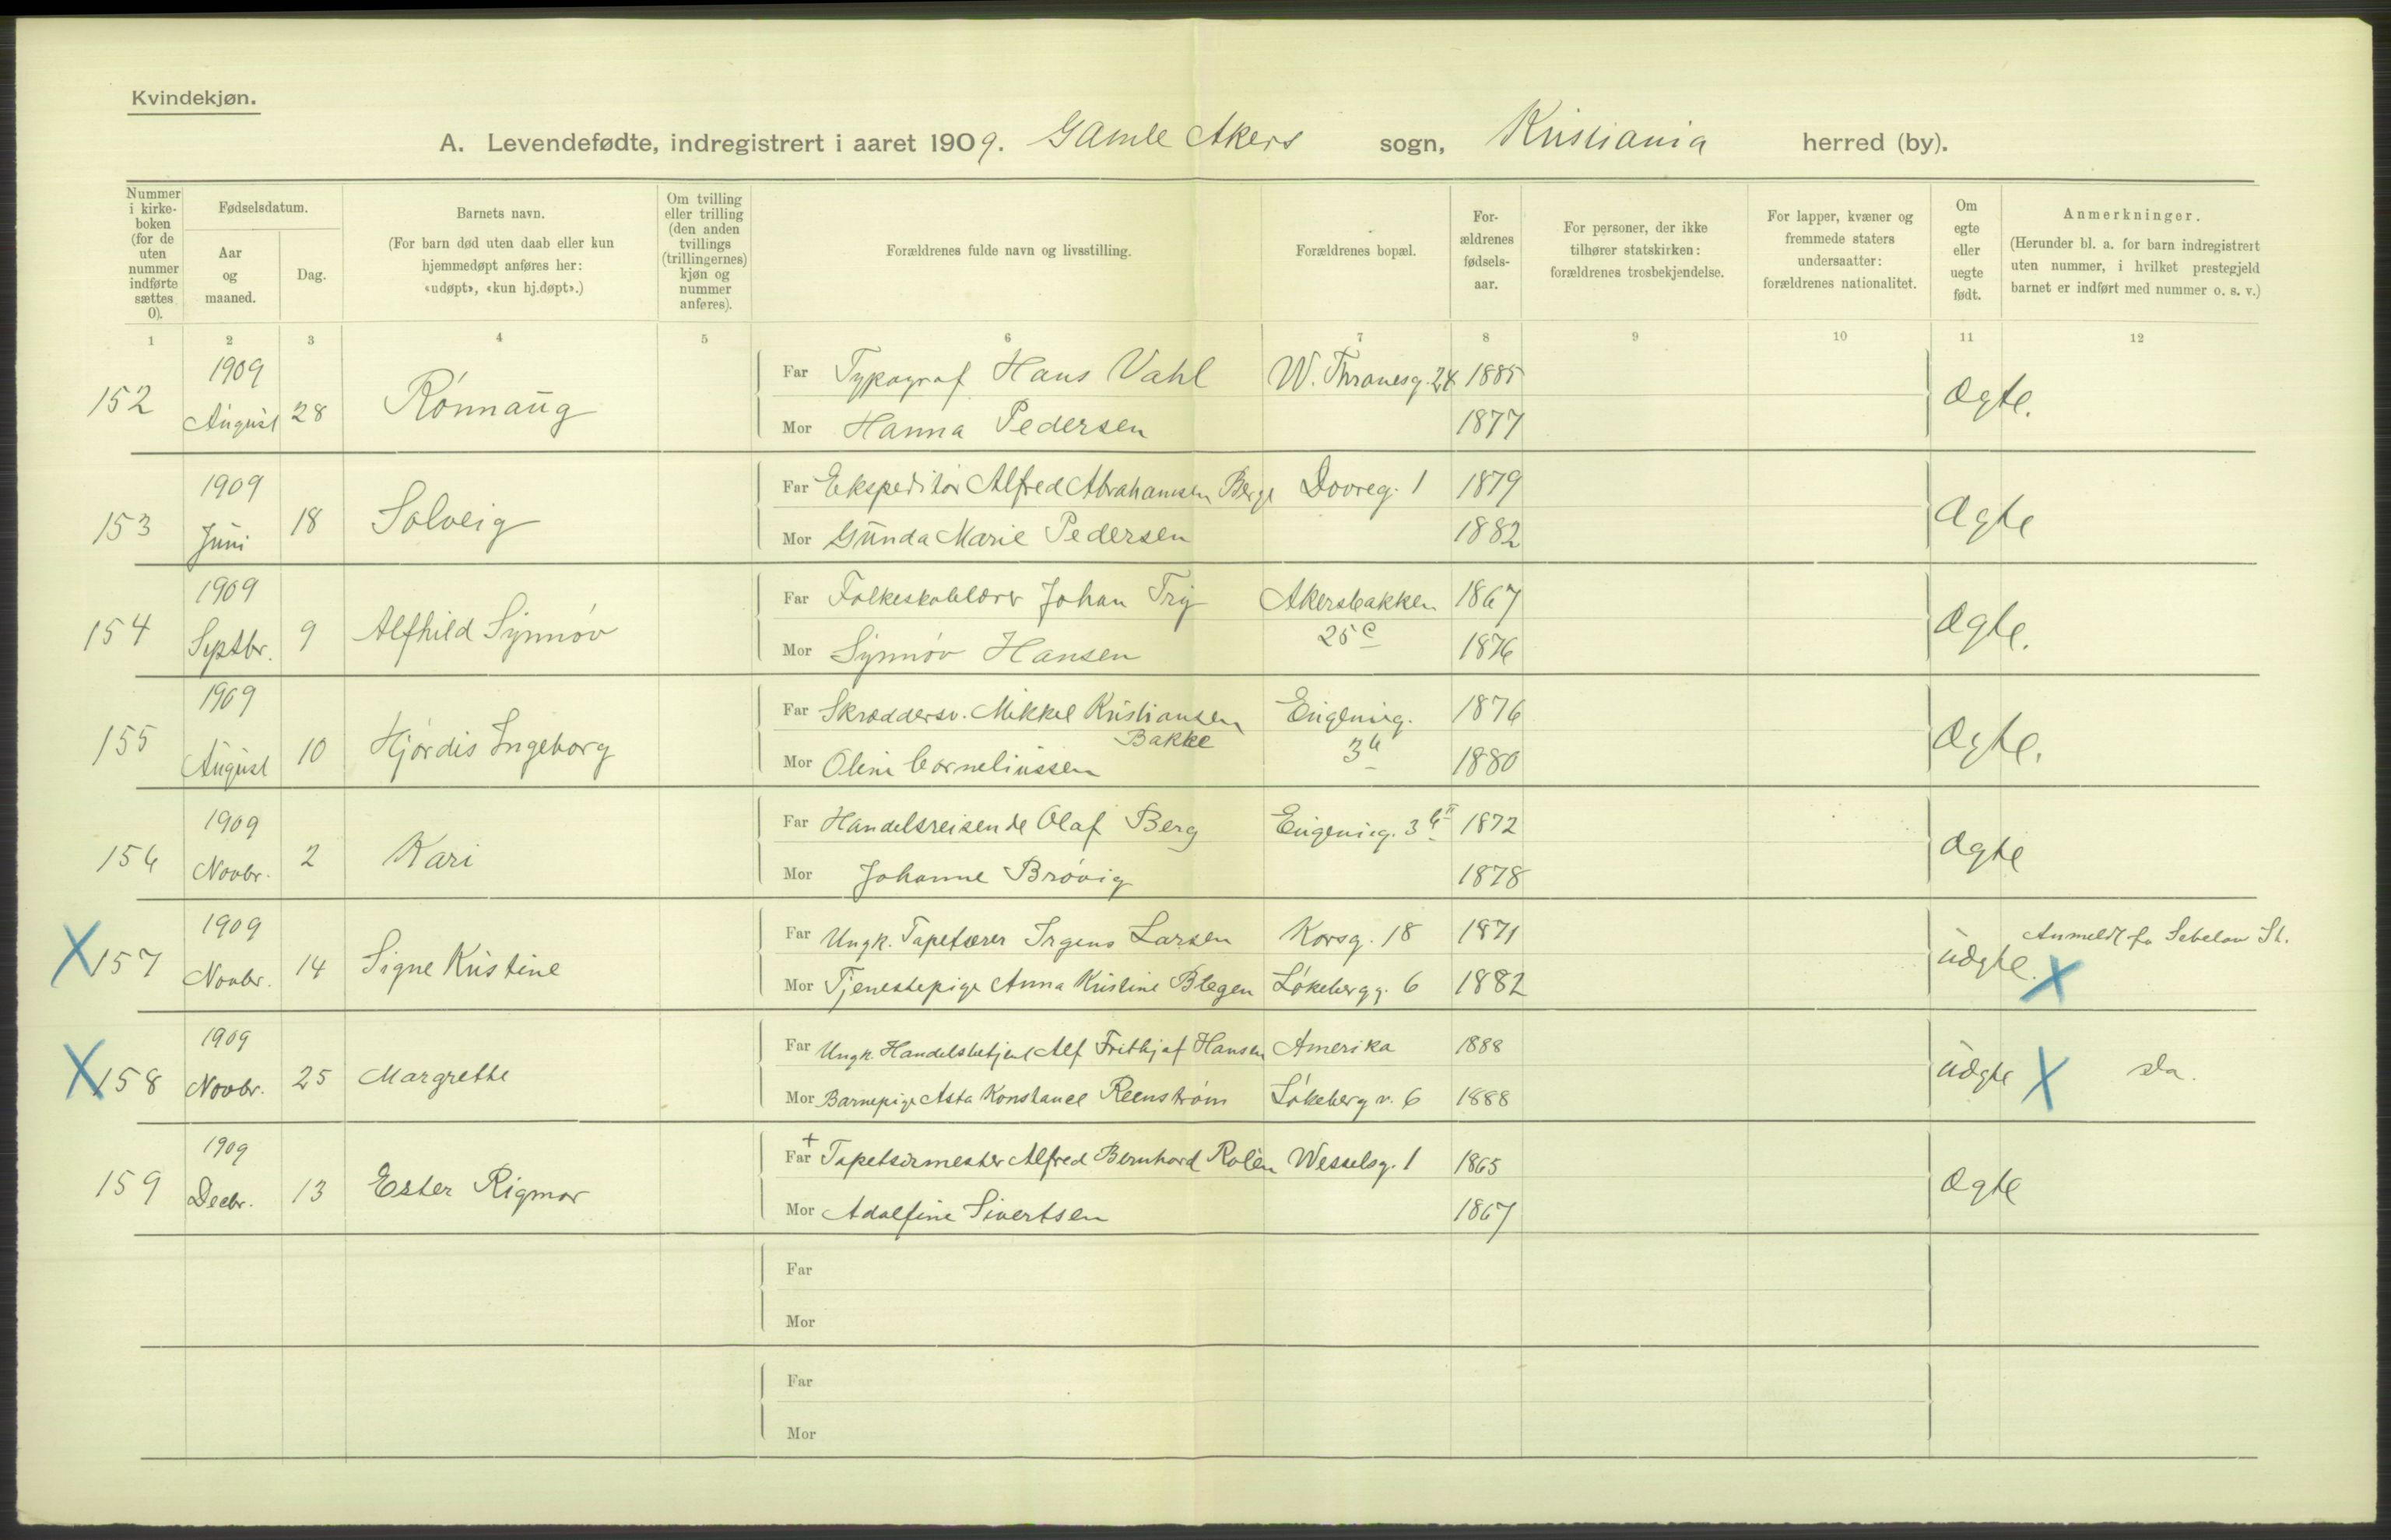 Kvindekjøn.
A. Levendefødte, indregistrert i aaret 1909. Gamle Akers sogn, Kristiania herred (by).
Nummer i kirkeboken (for de uten nummer indførte sættes 0).
Fødselsdatum.
Aar og maaned.
Dag.
Barnets navn.
(For barn død uten daab eller kun hjemmedøpt anføres her: «udøpt», «kun hj.døpt».)
Om tvilling eller trilling (den anden tvillings (trillingernes) kjøn og nummer anføres).
Forældrenes fulde navn og livsstilling.
Forældrenes bopæl.
Forældrenes fødselsaar.
For personer, der ikke tilhører statskirken: forældrenes trosbekjendelse.
For lapper, kvæner og fremmede staters undersaatter: forældrenes nationalitet.
Om egte eller uegte født.
Anmerkninger.
(Herunder bl. a. for barn indregistrert uten nummer, i hvilket prestegjeld barnet er indført med nummer o. s. v.)
1 2 3 4 5 6 7 8 9 10 11 12
152 1909 August 28 Rónnaug
Far Typograf Hans Vahl W. Thranesg. 24 1885 Ægte.
Mor Hanna Pedersen 1877
153 1909 Juni 18 Solveig
Far Ekspeditør Alfred Abrahamsen Berge Dovreg. 1 1879 Ægte
Mor Gunda Marie Pedersen 1882
154 1909 Septbr. 9 Alfhild Synnóv
Far Folkeskolelærer Johan Try Akersbakken 25 c 1867 Ægte.
Mor Synnóv Hansen 1876
155 1909 August 10 Hjórdis Ingeborg
Far Skræddersv. Mikkel Kristiansen Bakke Eugenieg. 1876 Ægte.
Mor Oline Corneliussen 1880
156 1909 Novbr. 2 Kari
Far Handelsreisende Olaf Berg Eugenieg. 1872 Ægte
Mor Johanne Bróvig 1878
X 157 1909 Novbr. 14 Signe Kristine
Far Ungk. Tapetserer Irgens Larsen Korsg. 18 1871 uægte. X Anmeldt fra St.
Mor Tjenestepige Anna Kristine Blegen Lókebergg. 6 1882
X 158 1909 Novbr. 25 Margrethe
Far Ungk. Handelsbetjent Alf Frithjof Hansen Amerika 1888 uægte X do.
Mor Barnepige Asta Konstance Reenstróm Lókeberg v. 6 1888
159 1909 Decbr. 13 Ester Rigmor
+
Far Tapetsermester Alfred Bernhard Rolén Wesselsg. 1 1865 Ægte
Mor Adolfine Sivertsen 1867
Far
Mor
Far
Mor